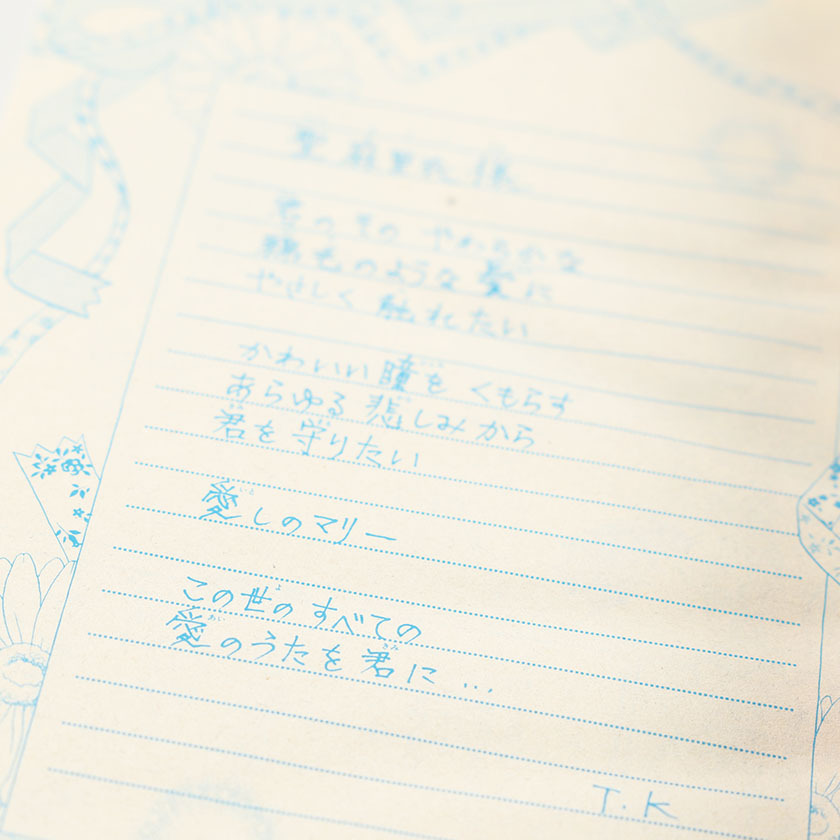 君のその やわらかな
鵝毛のような髪に
やさしく 触れたい
かわいい瞳を くもらす
あらゆる 悲しみから
君を守りたい
愛しのマリー
この世の すべての
愛のうたを 君に…
T.K